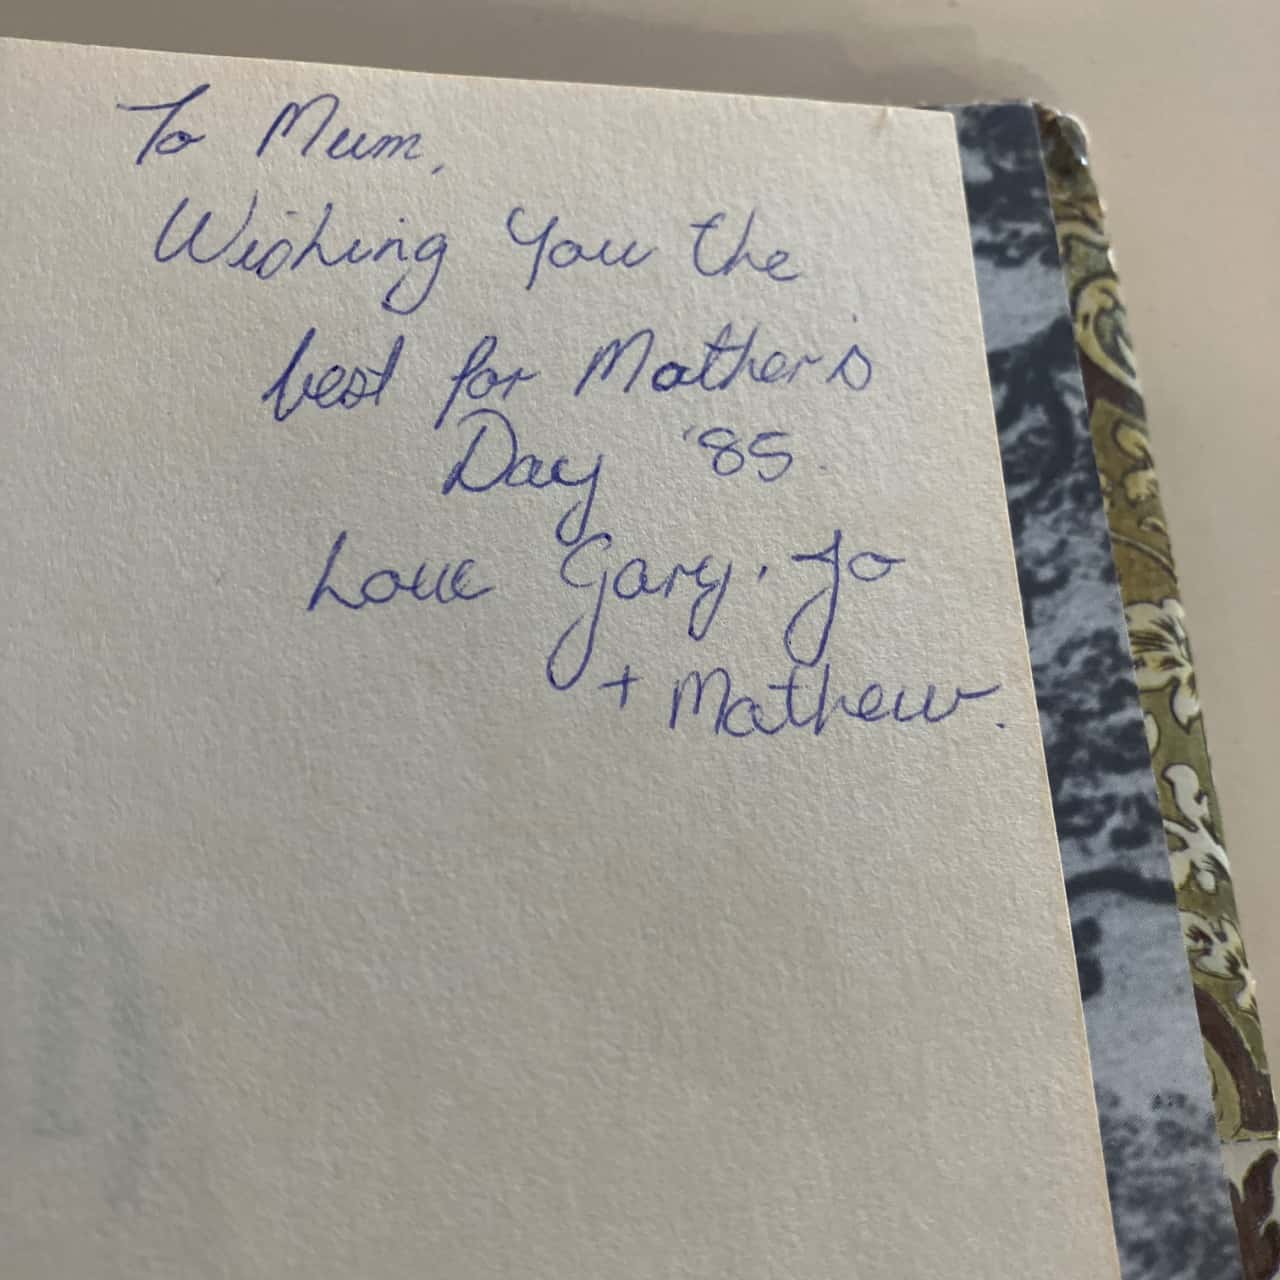 To Mum,
Wishing You the
best for Mother's
Day '85.
Love Gary, Jo
+ Mathew.